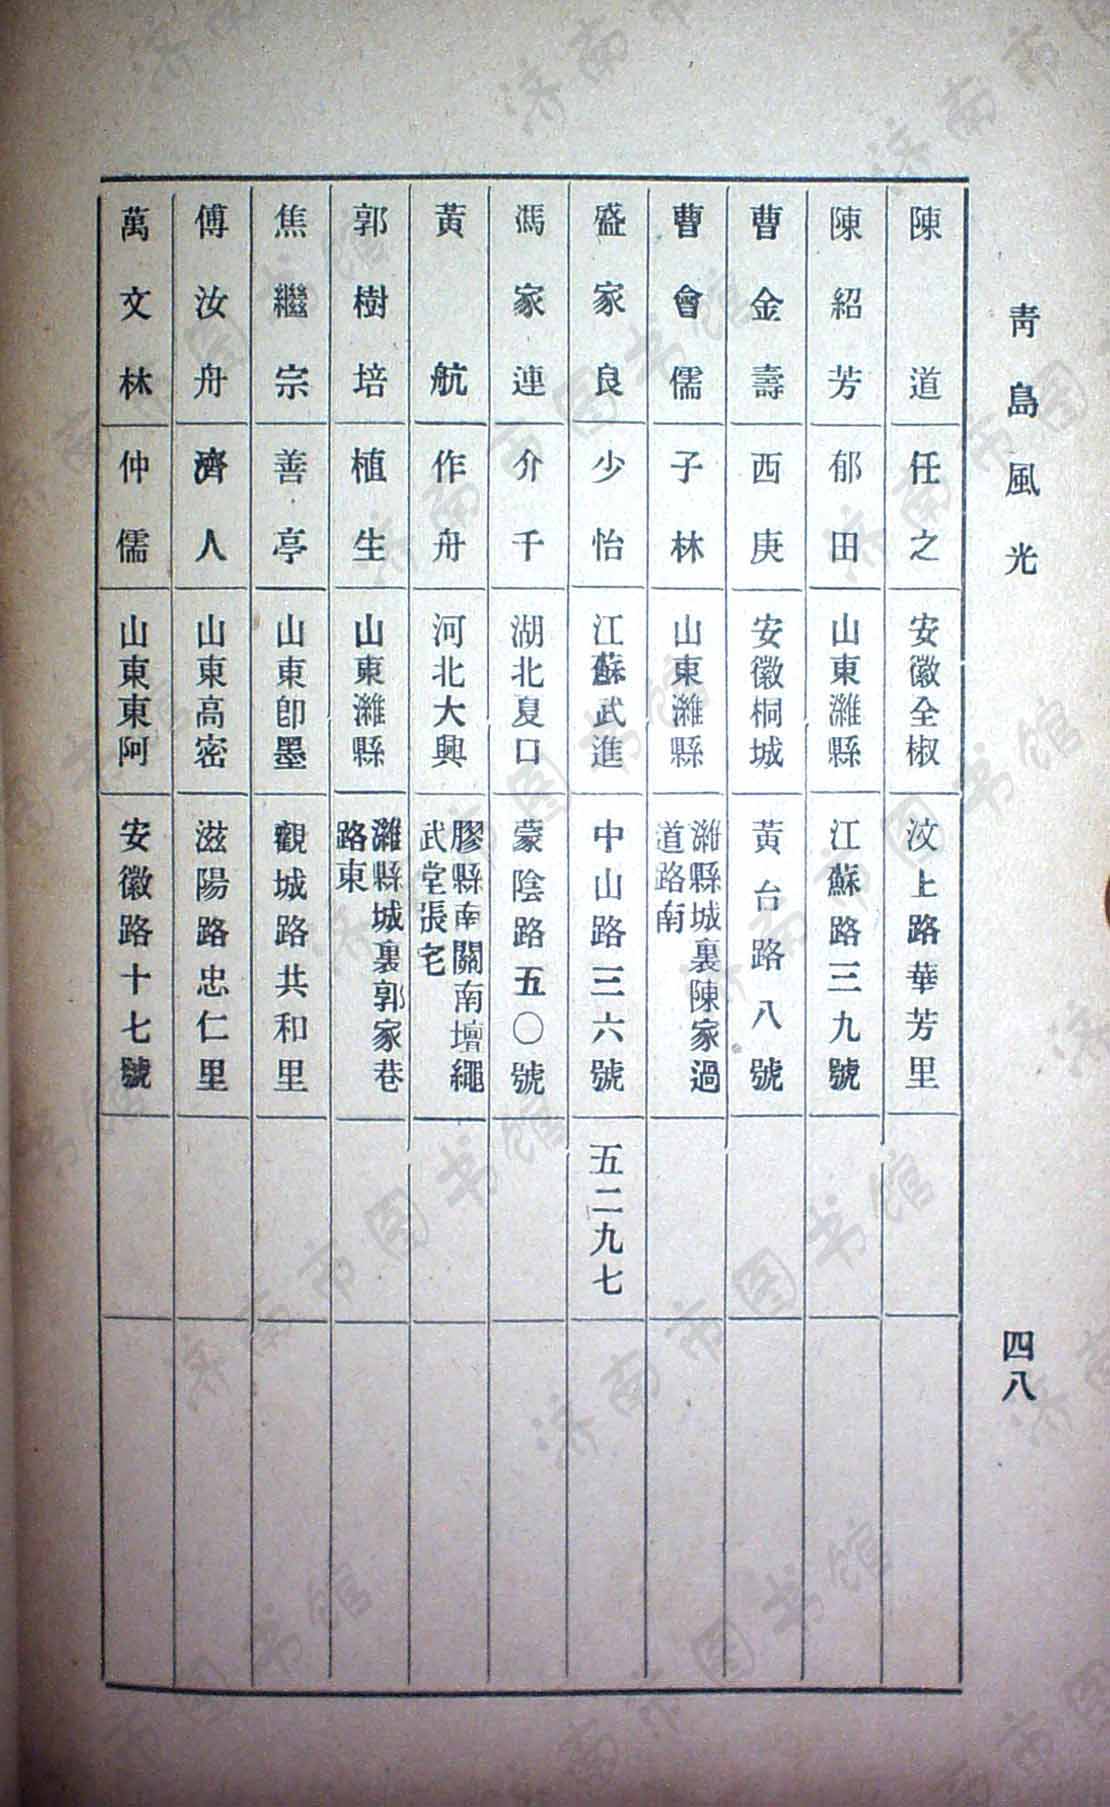 青島風光
四八
陳道 任之 安徽全椒 汶上路華芳里
陳紹芳 郁田 山東濰縣 江蘇路三九號
曹金壽 西庚 安徽桐城 黃台路八號
曹會儒 子林 山東濰縣 濰縣城裏陳家過
道路南
盛家良 少怡 江蘇武進 中山路三六號 五二九七
馮家連 介千 湖北夏口 蒙陰路五〇號
黃航 作舟 河北大興 膠縣南關南壇繩
武堂張宅
郭樹培 植生 山東濰縣 濰縣城裏郭家巷
路東
焦繼宗 善亭 山東卽墨 觀城路共和里
傅汝舟 濟人 山東高密 滋陽路忠仁里
萬文林 仲儒 山東東阿 安徽路十七號
济南市图书馆